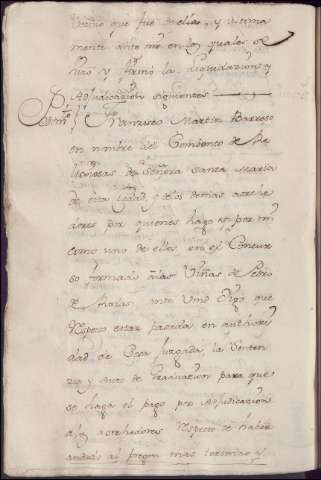 que fue de ellos, y ultima
mente ante mi en los quales se
hizo y firmo la liquidazion y
Adjudicazion siguientes
Franzisco Martin Barroso
en nombre del Combento de Re
ligiosas de Señora Santa Maria
de esta Ciudad, y de los demas acrehe
dores por quienes hago y por mi
como uno de ellos, en el Concur
so formado a las Viñas de Pedro
de ante Vmd Digo que
respecto estar pasada en authori
dad de Cosa juzgada, la senten
zia y auto de Graduazion para que
se haga el pago por Adjudicazion
a los acrehedores respecto de haber
andado al pregon mas termino y